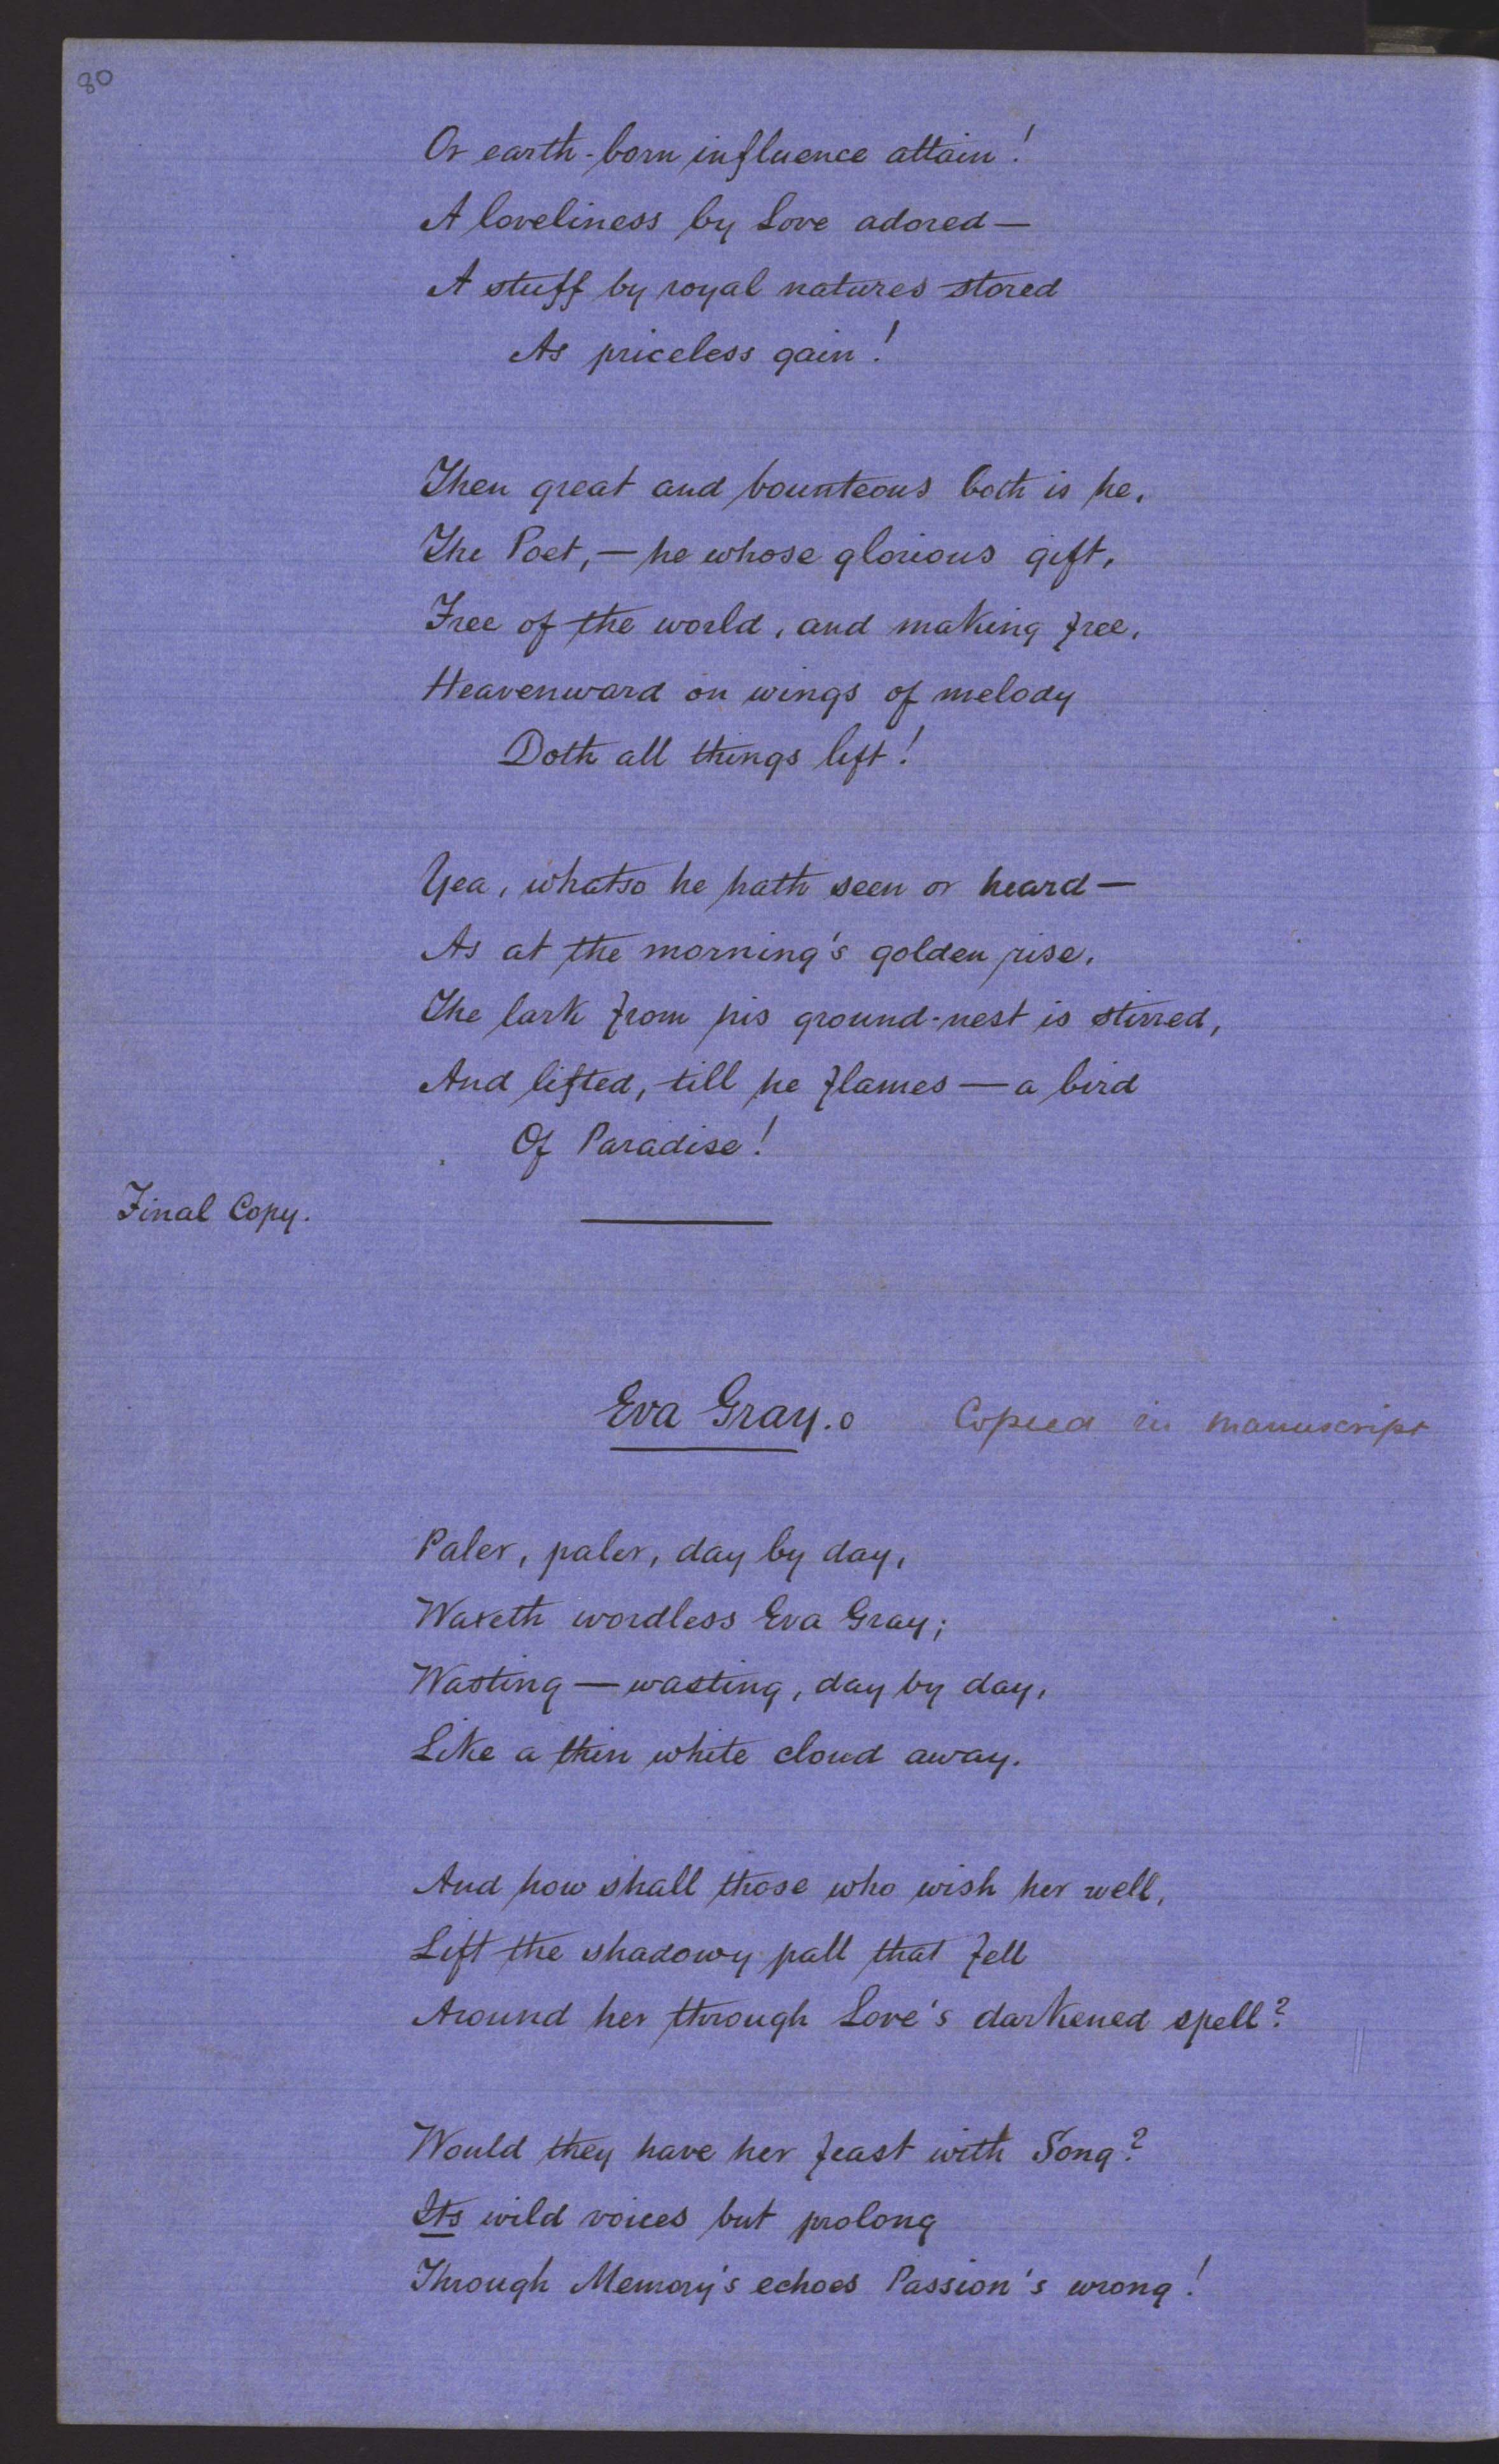 80
Or earth-born influence attain!
A loveliness by Love adored—
A stuff by royal natures stored
As priceless gain!
Then great and bounteous both is he,
The Poet,—he whose glorious gift,
Free of the world, and making free,
Heavenward on wings of melody
Doth all things lift!
Yea, whatso he hath seen or heard—
As at the morning's golden rise,
The lark from his ground-nest is stirred,
And lifted, till he flames—a bird
Of Paradise!
Final Copy.
Eva Gray.o Copied in manuscript
Paler, paler, day by day,
Waxeth wordless Eva Gray;
Wasting—wasting, day by day,
Like a thin white cloud away.
And how shall those who wish her well,
Lift the shadowy pall that fell
Around her through Love's darkened spell?
Would they have her feast with Song?
Its wild voices but prolong
Through Memory's echoes Passion's wrong!